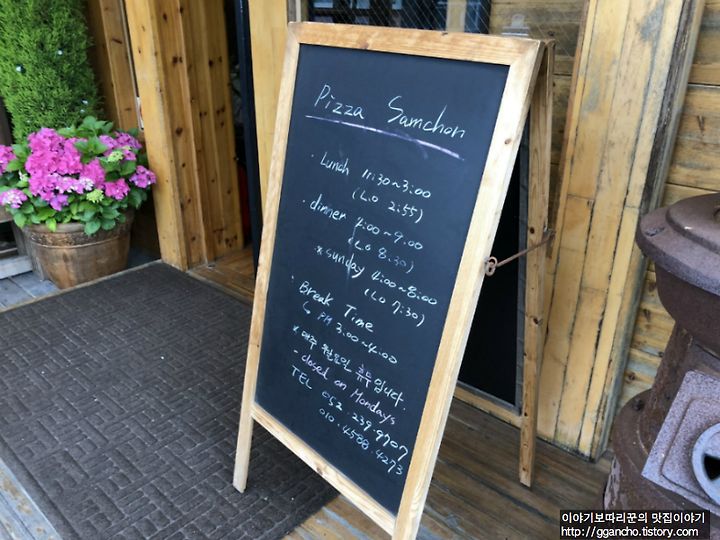 Pizza Samchon
· Lunch 11:30~3:00
(L.O 2:55)
· dinner 4:00~9.00
(L.O 8.30)
*sunday 4:00~8:00
(L.O 7:30)
· Break Time
↳ PM 3.00~4.00
* 매주 월요일은 휴무입니다.
- closed on Mondays
TEL 052.239.9707
010.4588.4273
이야기보따리꾼의 맛집이야기
http://ggancho.tistory.com